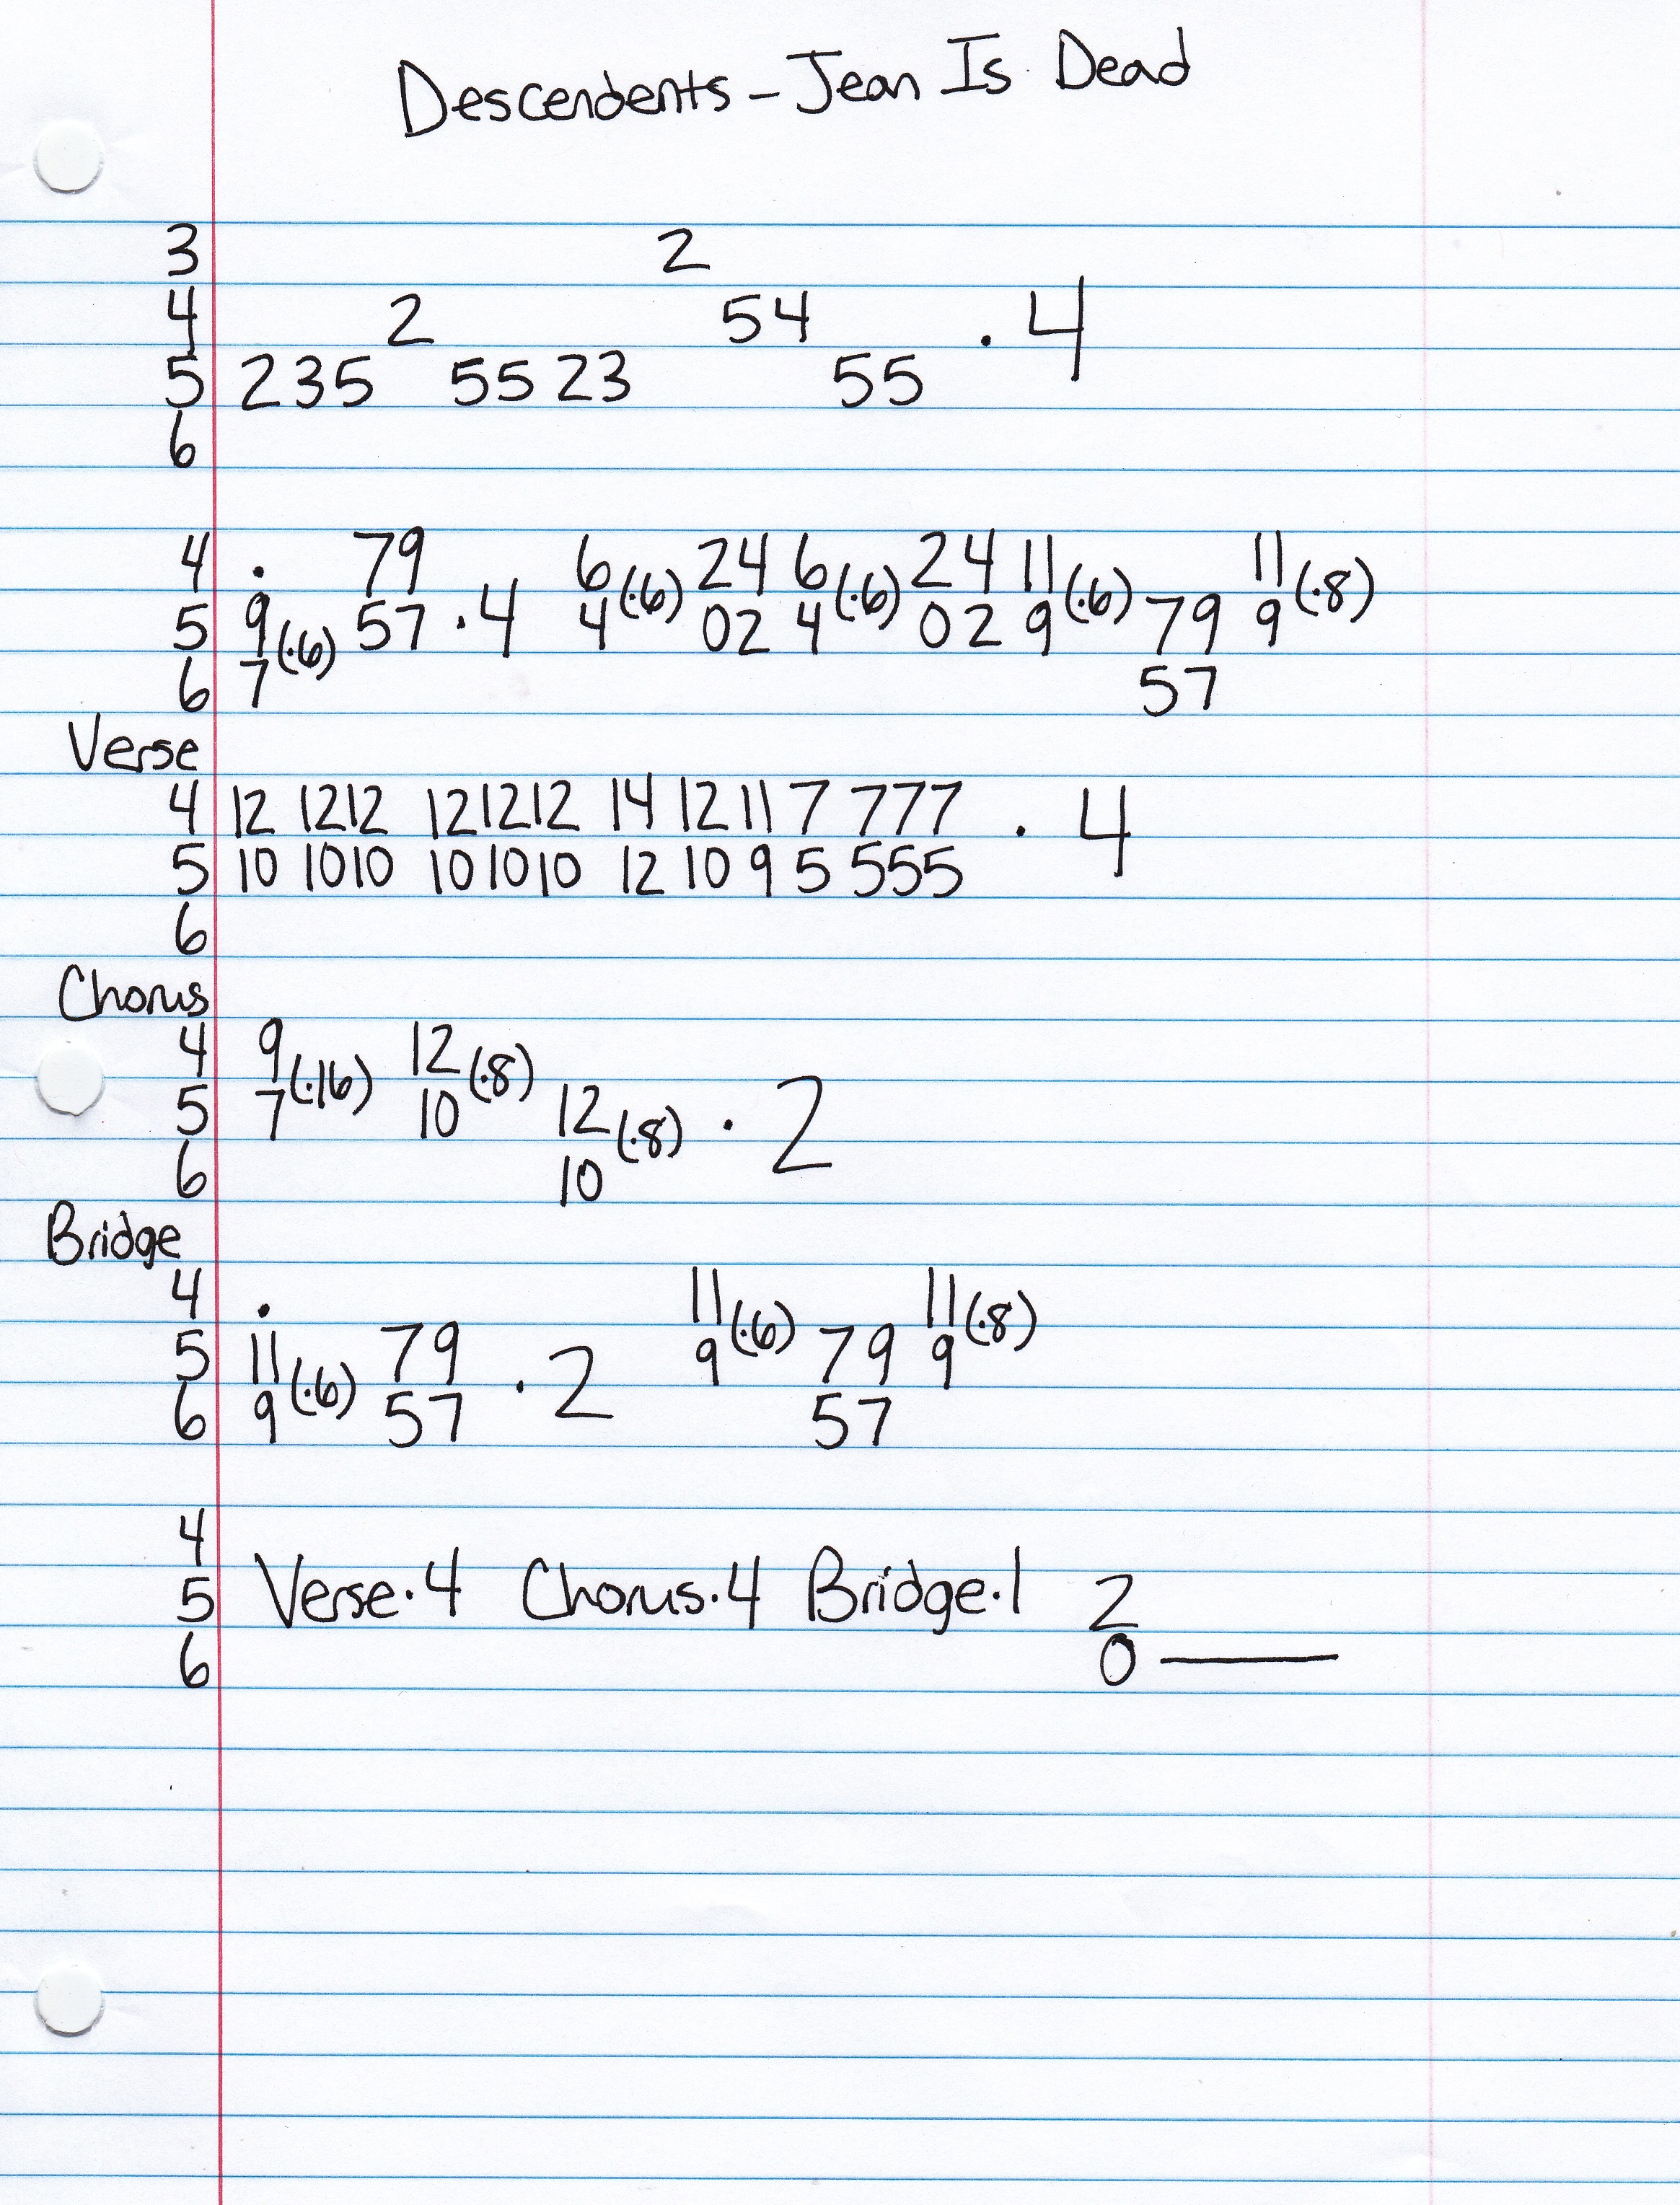 Descendents - Jean Is Dead
3 2
4 2 54 . 4
5 235 55 23 55
6
4 . 79 6 (.6) 24 6 (.6) 24 11 (.6) 11 (.8)
5 9 (.6) 57 . 4 4 02 4 02 9 79 9
6 7 57
Verse
4 12 1212 121212 14 12 11 7 777 . 4
5 10 1010 101010 12 10 9 5 555
6
Chorus
4 9 (.16) 12 (.8)
5 7 10 12 (.8) . 2
6 10
Bridge
4 . 11 (.6) 11 (.8)
5 11 (.6) 79 . 2 9 79 9
6 9 57 57
4
5 Verse.4 Chorus.4 Bridge.1 2
6 0 —